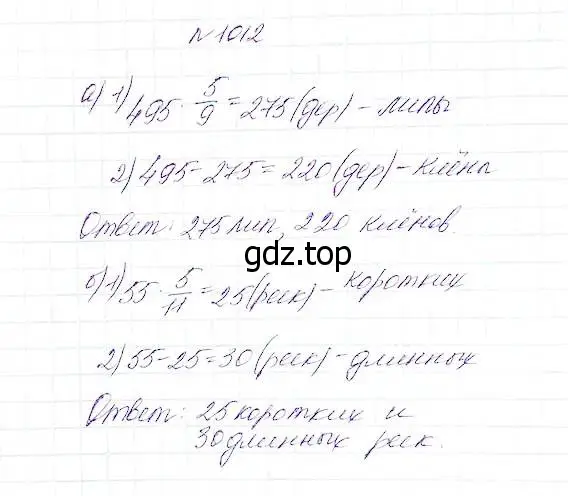 № 1012
а) 1) 495 · 5/9 = 275 (дер) - липы
2) 495 - 275 = 220 (дер) - клёны
Ответ: 275 лип, 220 клёнов.
gdz.top
б) 1) 55 · 5/11 = 25 (реек) - коротких
2) 55 - 25 = 30 (реек) - длинных
Ответ: 25 коротких и
30 длинных реек.